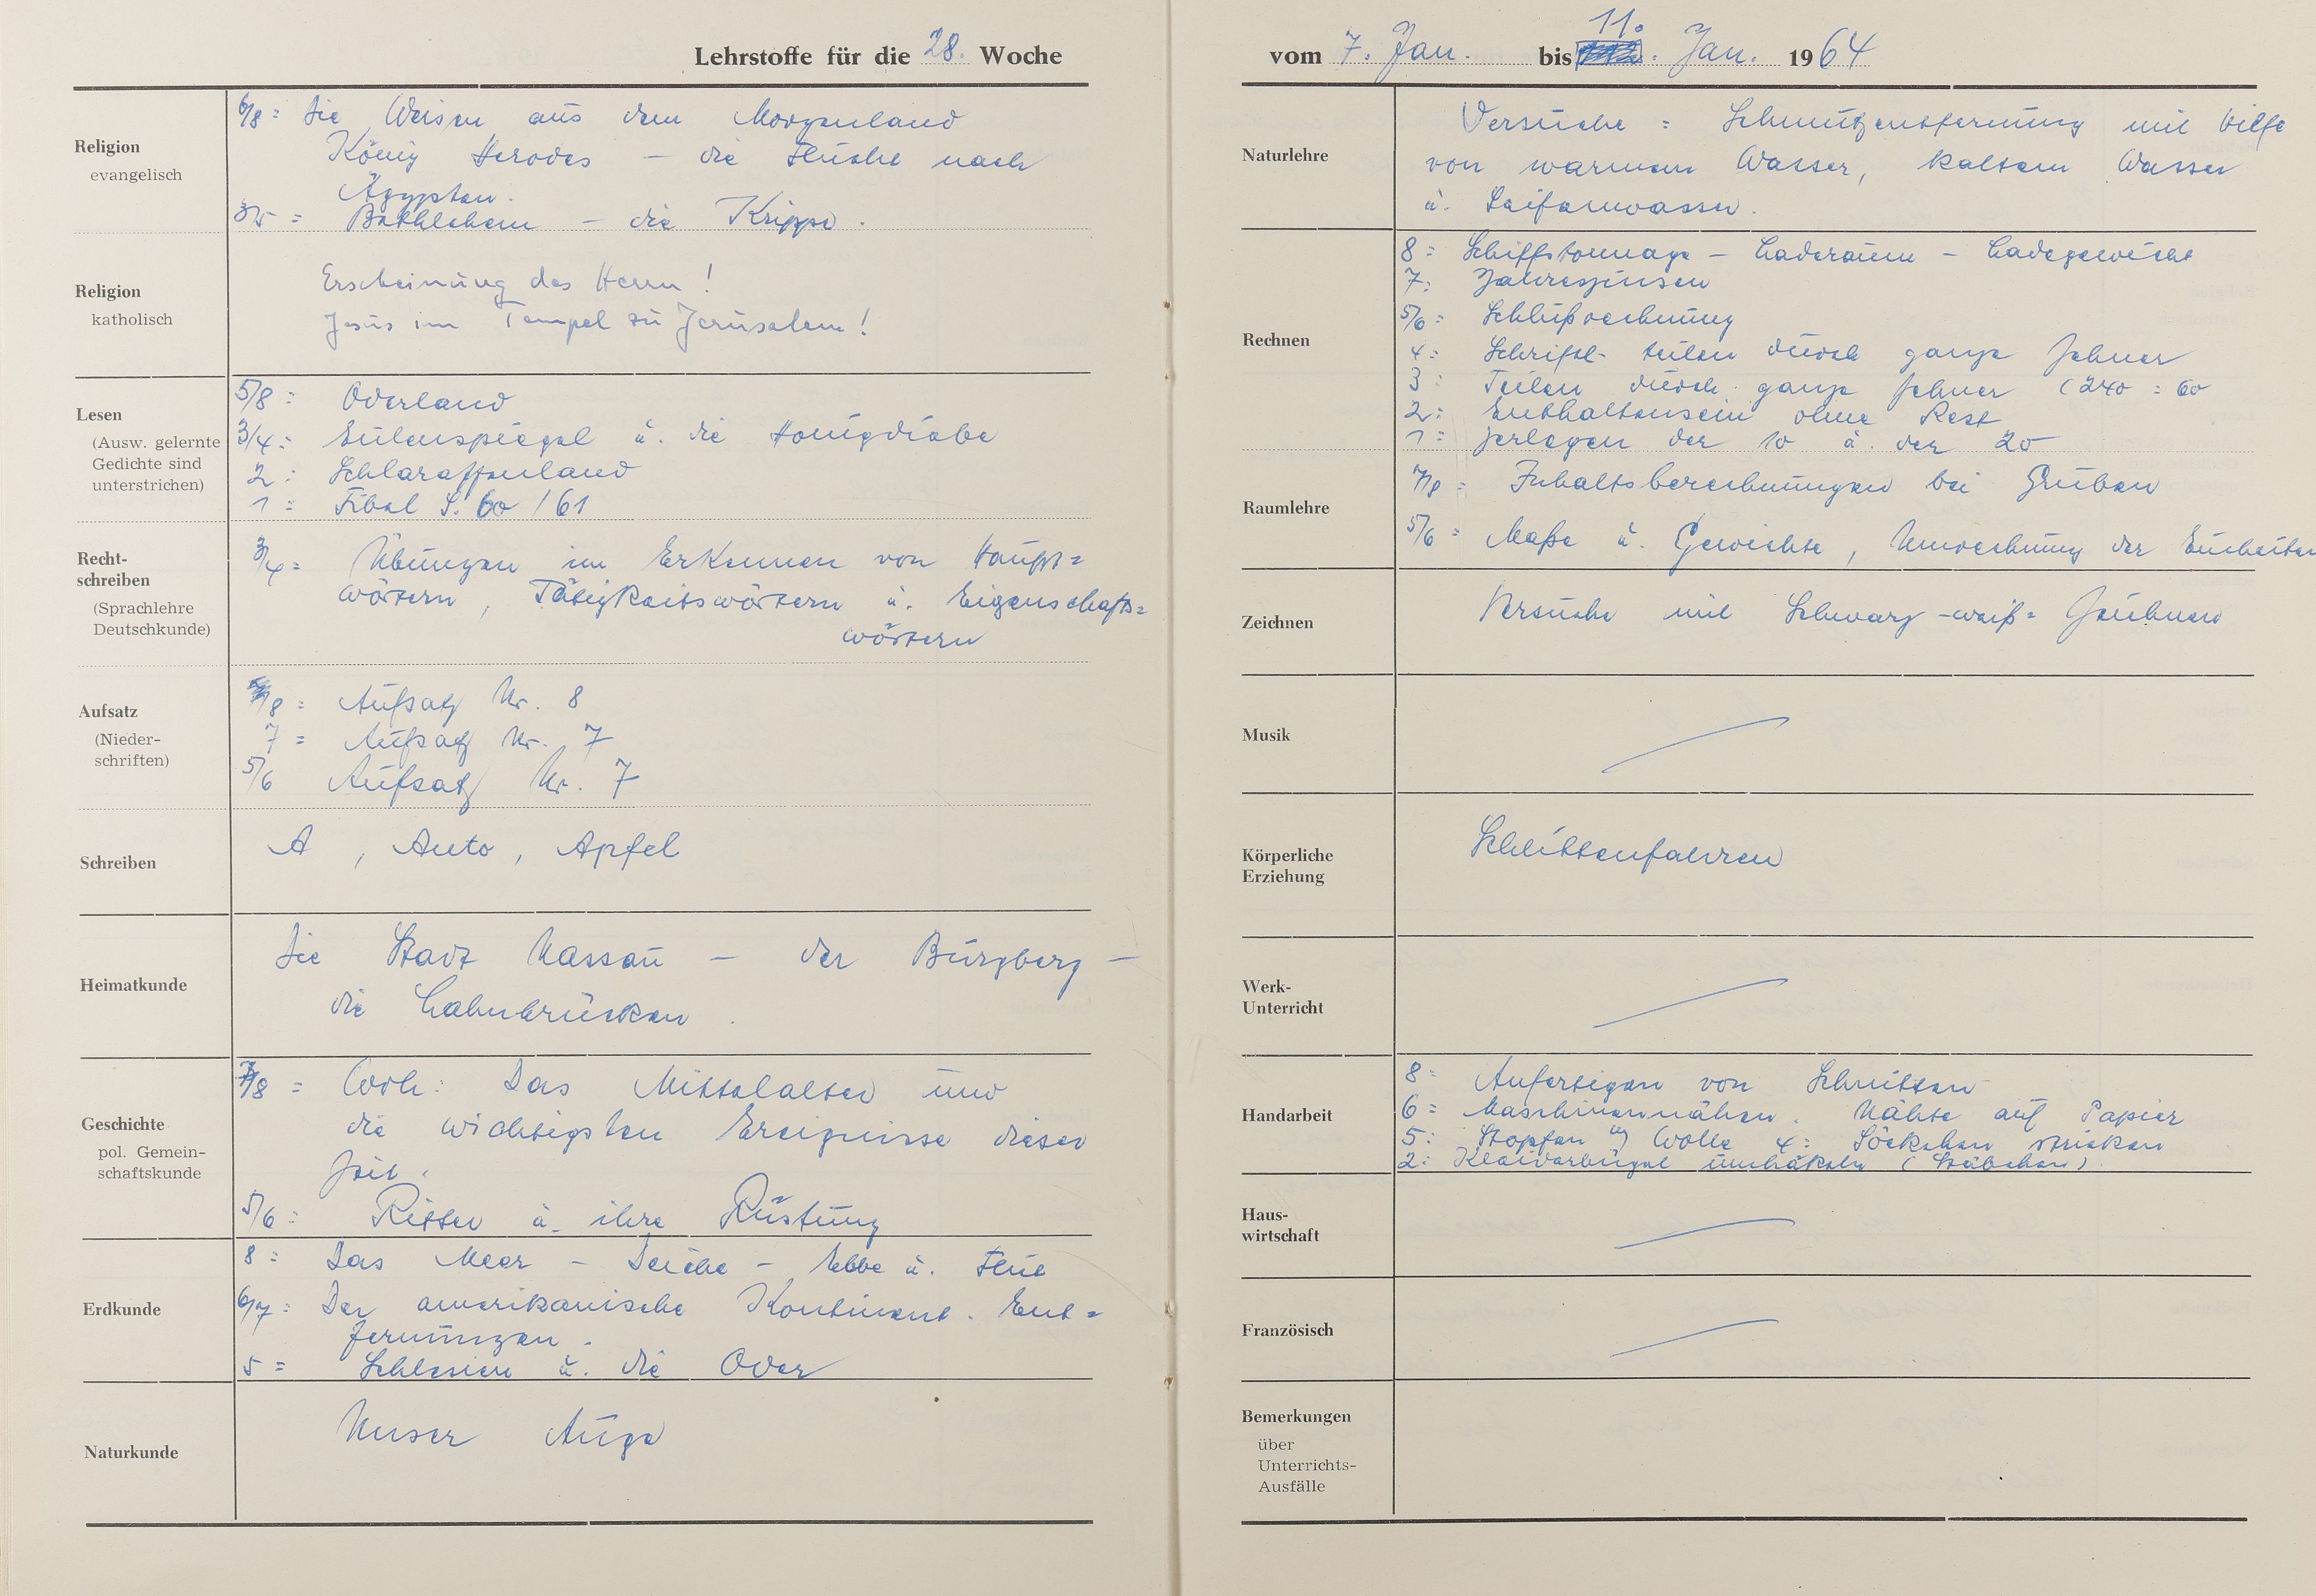 Lehrstoffe für die 28. Woche
Religion
evangelisch
6/8 = Die Weisen aus dem Morgenland
König Herodes – die Flucht nach
Ägypten.
3/5 = Bethlehem – die Krippe.
Religion
katholisch
Erscheinung des Herrn!
Jesus im Tempel zu Jerusalem!
Lesen
(Ausw. gelernte
Gedichte sind
unterstrichen)
5/8 = Oderland
3/4 = Eulenspiegel u. die Honigdiebe
2 = Schlaraffenland
1 = Fibel S. 60 / 61
Recht-
schreiben
(Sprachlehre
Deutschkunde)
3/4 = Übungen im Erkennen von Haupt=
wörtern, Tätigkeitswörtern u. Eigenschafts=
wörtern
Aufsatz
(Nieder-
schriften)
8 = Aufsatz Nr. 8
7 = Aufsatz Nr. 7
5/6 Aufsatz Nr. 7
Schreiben
A, Auto, Apfel
Heimatkunde
Die Stadt Nassau – der Burgberg –
die Lahnbrücken.
Geschichte
pol. Gemein-
schaftskunde
7/8 = Wdh: Das Mittelalter und
die wichtigsten Ereignisse dieser
Zeit.
5/6 = Ritter u. ihre Rüstung
Erdkunde
8 = Das Meer – Deiche – Ebbe u. Flut
6/7 = Der amerikanische Kontinent. Ent=
fernungen.
5 = Schlesien u. die Oder
Naturkunde
Unser Auge
vom 7. Jan. bis 11. Jan. 1964
Naturlehre
Versuche = Schmutzentfernung mit Hilfe
von warmem Wasser, kaltem Wasser
u. Seifenwasser.
Rechnen
8 = Schiffstonnage – Laderaum – Ladegewicht
7 = Jahreszinsen
5/6 = Schlußrechnung
4 = Schriftl. teilen durch ganze Zehner
3 = Teilen durch ganze Zehner (240 : 60
2 = Enthaltensein ohne Rest
1 = Zerlegen der 10 u. der 20
Raumlehre
7/8 = Inhaltsberechnungen bei Gruben
5/6 = Maße u. Gewichte, Umrechnung der Einheiten
Zeichnen
Versuche mit Schwarz-weiß=
Musik
Körperliche
Erziehung
Schlittenfahren
Werk-
Unterricht
Handarbeit
8 = Anfertigen von Schnitten
6 = Maschinennähen. Nähte auf Papier
5 = Stopfen Wolle 4 = Söckchen stricken
2 = Kleiderbügel umhäkeln (Stäbchen).
Haus-
wirtschaft
Französisch
Bemerkungen
über
Unterrichts-
Ausfälle